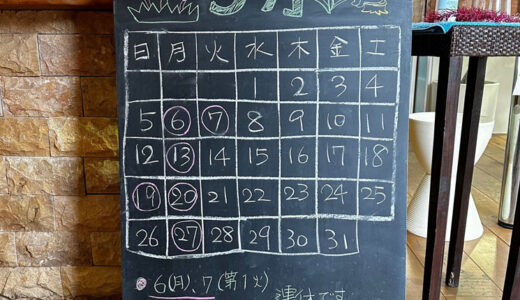 日 月 火 水 木 金 土
1 2 3 4
5 6 7 8 9 10 11
12 13 14 15 16 17 18
19 20 21 22 23 24 25
26 27 28 29 30 31
6(月)、7(第1火)
連休です